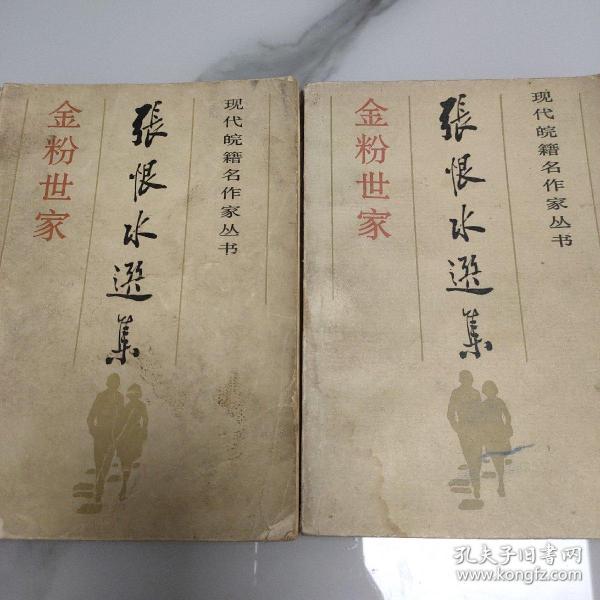 现代皖籍名作家丛书
張恨水選集
金粉世家
现代皖籍名作家丛书
張恨水選集
金粉世家
孔夫子旧书网
www.kongfz.com